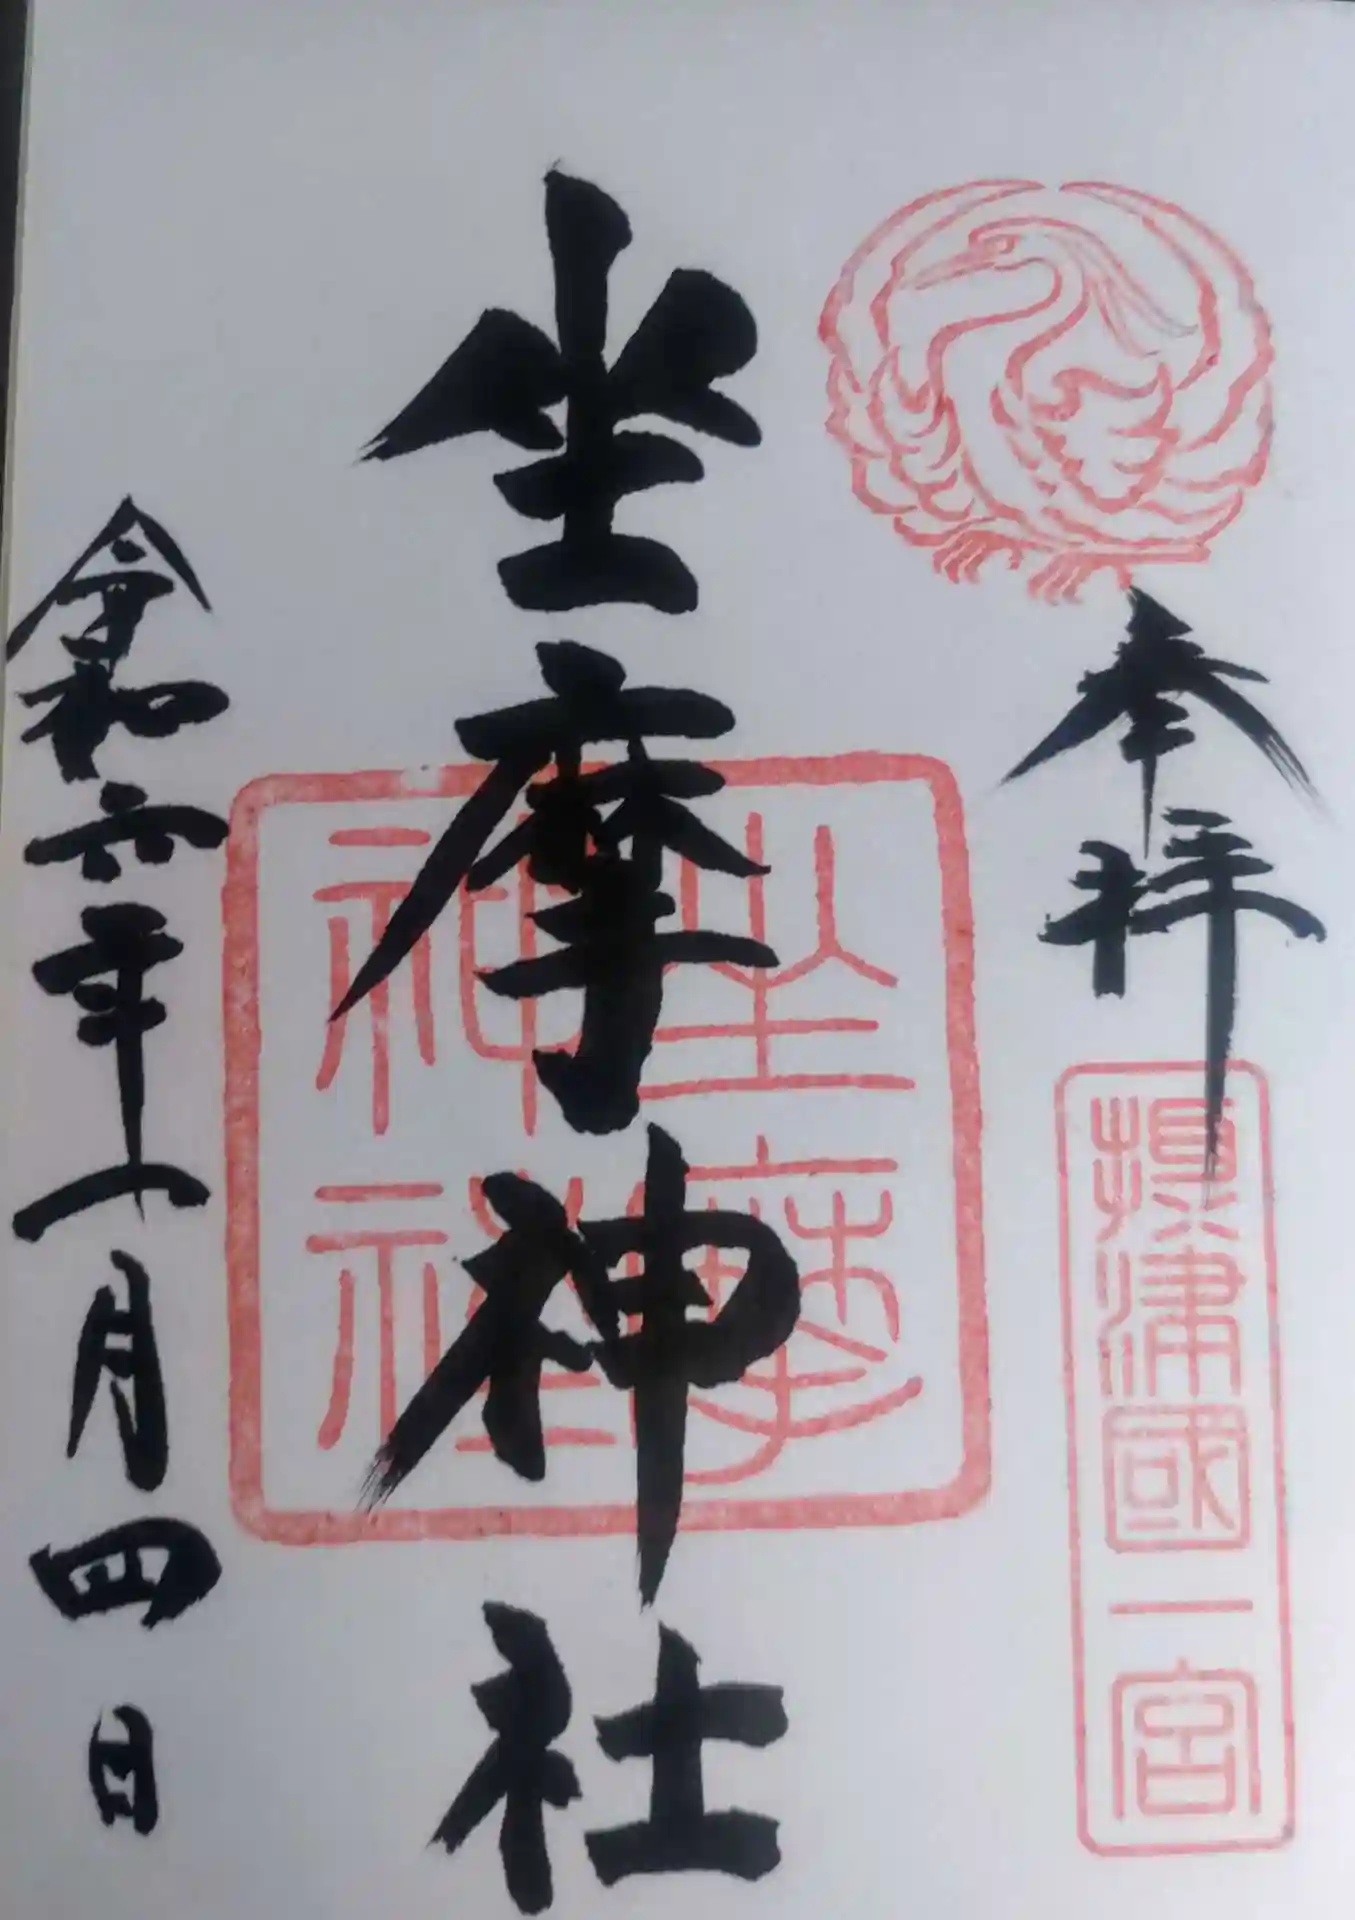 奉拝
摂津國一宮
坐摩神社
坐摩
神社
令和六年十一月四日